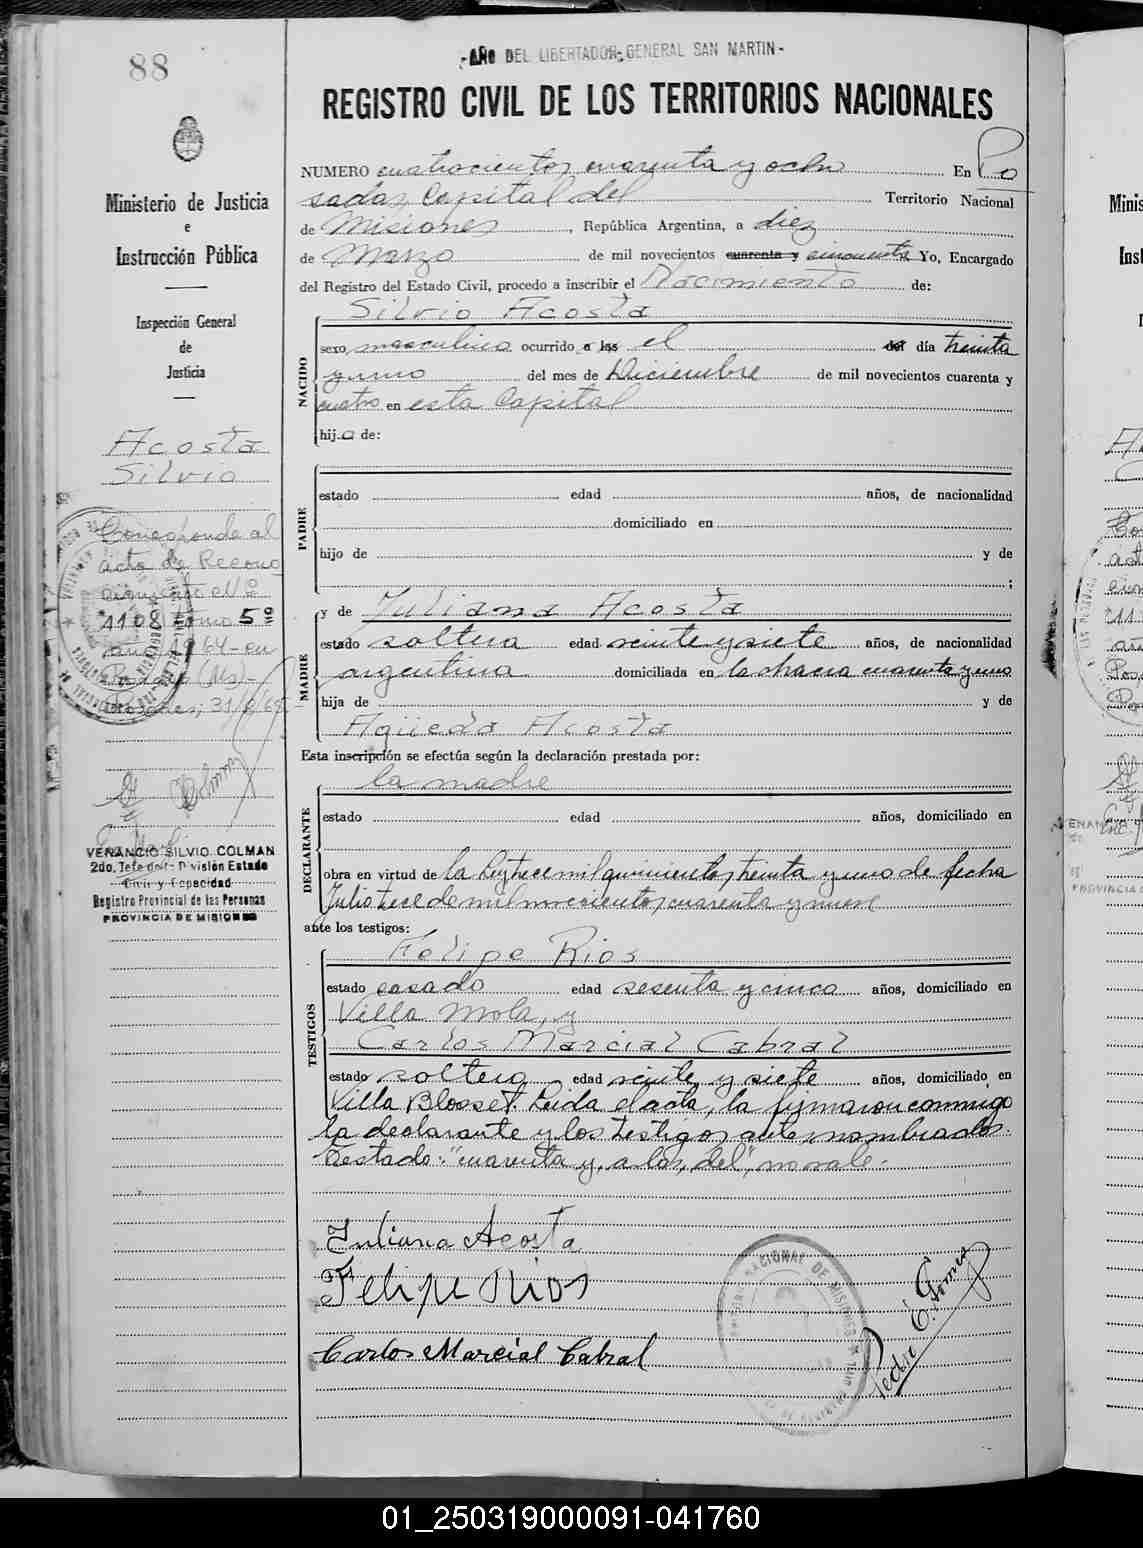 88
-AÑO DEL LIBERTADOR GENERAL SAN MARTIN-
REGISTRO CIVIL DE LOS TERRITORIOS NACIONALES
Ministerio de Justicia
e
Instrucción Pública
Inspección General
de
Justicia
Acosta
Silvio
Corresponde al
acta de Recono
cimiento Nº
1108 tomo 5º
año 1964 - en
Posadas (Ms) -
Posadas, 31/
VENANCIO SILVIO COLMAN
2do. Jefe de División Estado
Civil y Capacidad
Registro Provincial de las Personas
PROVINCIA DE MISIONES
NUMERO cuatrocientos cuarenta y ocho En Po
sadas, Capital del Territorio Nacional
de Misiones, República Argentina, a diez
de Marzo de mil novecientos cuarenta y cincuenta Yo, Encargado
del Registro del Estado Civil, procedo a inscribir el Nacimiento de:
NACIDO
Silvio Acosta
sexo masculino ocurrido a las el del día treinta
y uno del mes de Diciembre de mil novecientos cuarenta y
cuatro en esta Capital
hijo de:
PADRE
estado edad años, de nacionalidad
domiciliado en
hijo de y de
;
MADRE
y de Juliana Acosta
estado soltera edad veinte y siete años, de nacionalidad
argentina domiciliada en la chacra cuarenta y uno
hija de y de
Agüeda Acosta
Esta inscripción se efectúa según la declaración prestada por:
DECLARANTE
la madre
estado edad años, domiciliado en
obra en virtud de la Ley trece mil quinientos treinta y uno de fecha
Julio trece de mil novecientos cuarenta y nueve
ante los testigos:
TESTIGOS
Felipe Rios
estado casado edad sesenta y cinco años, domiciliado en
Villa Mola, y
Carlos Marcial Cabral
estado soltero edad veinte y siete años, domiciliado en
Villa Blosset. Leida el acta, la firmaron conmigo
la declarante y los testigos antes nombrados.
Testado: "cuarenta y, a las, del", no vale.-
Juliana Acosta
Felipe Rios
Carlos Marcial Cabral
Pedro E. Gomez
01_250319000091-041760